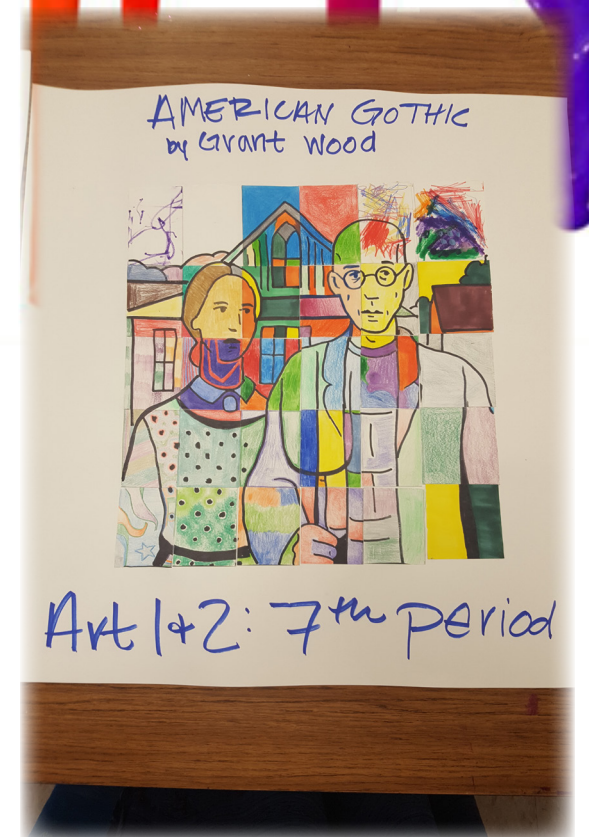 AMERICAN GOTHIC
by Grant Wood
Art 1+2: 7th period